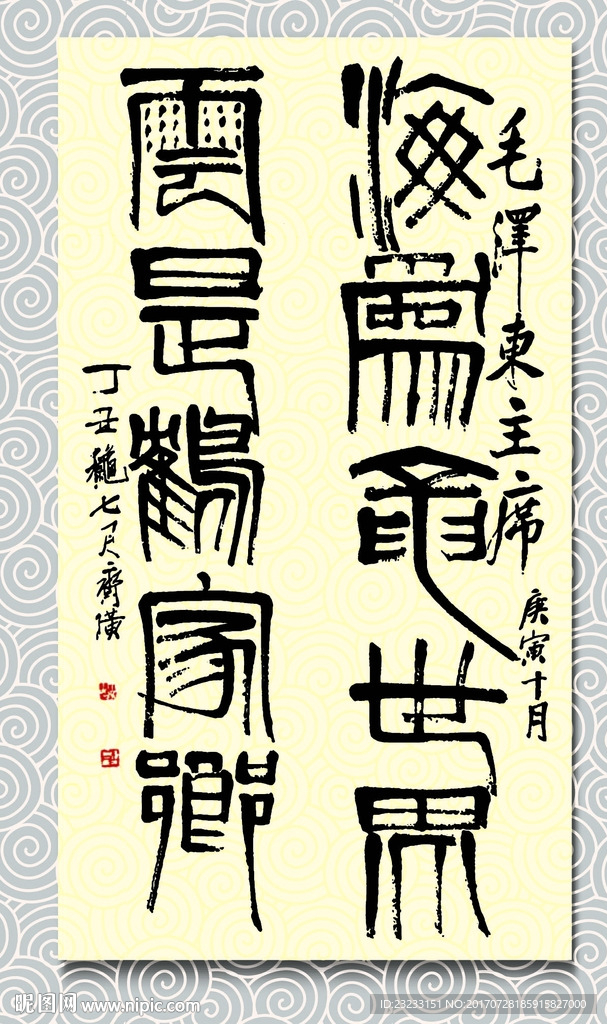 毛澤東主席
庚寅十月
海為龍世界
雲是鶴家鄉
丁丑穐七月齊璜
昵图网 www.nipic.com
ID:23233151 NO:20170728185915827000